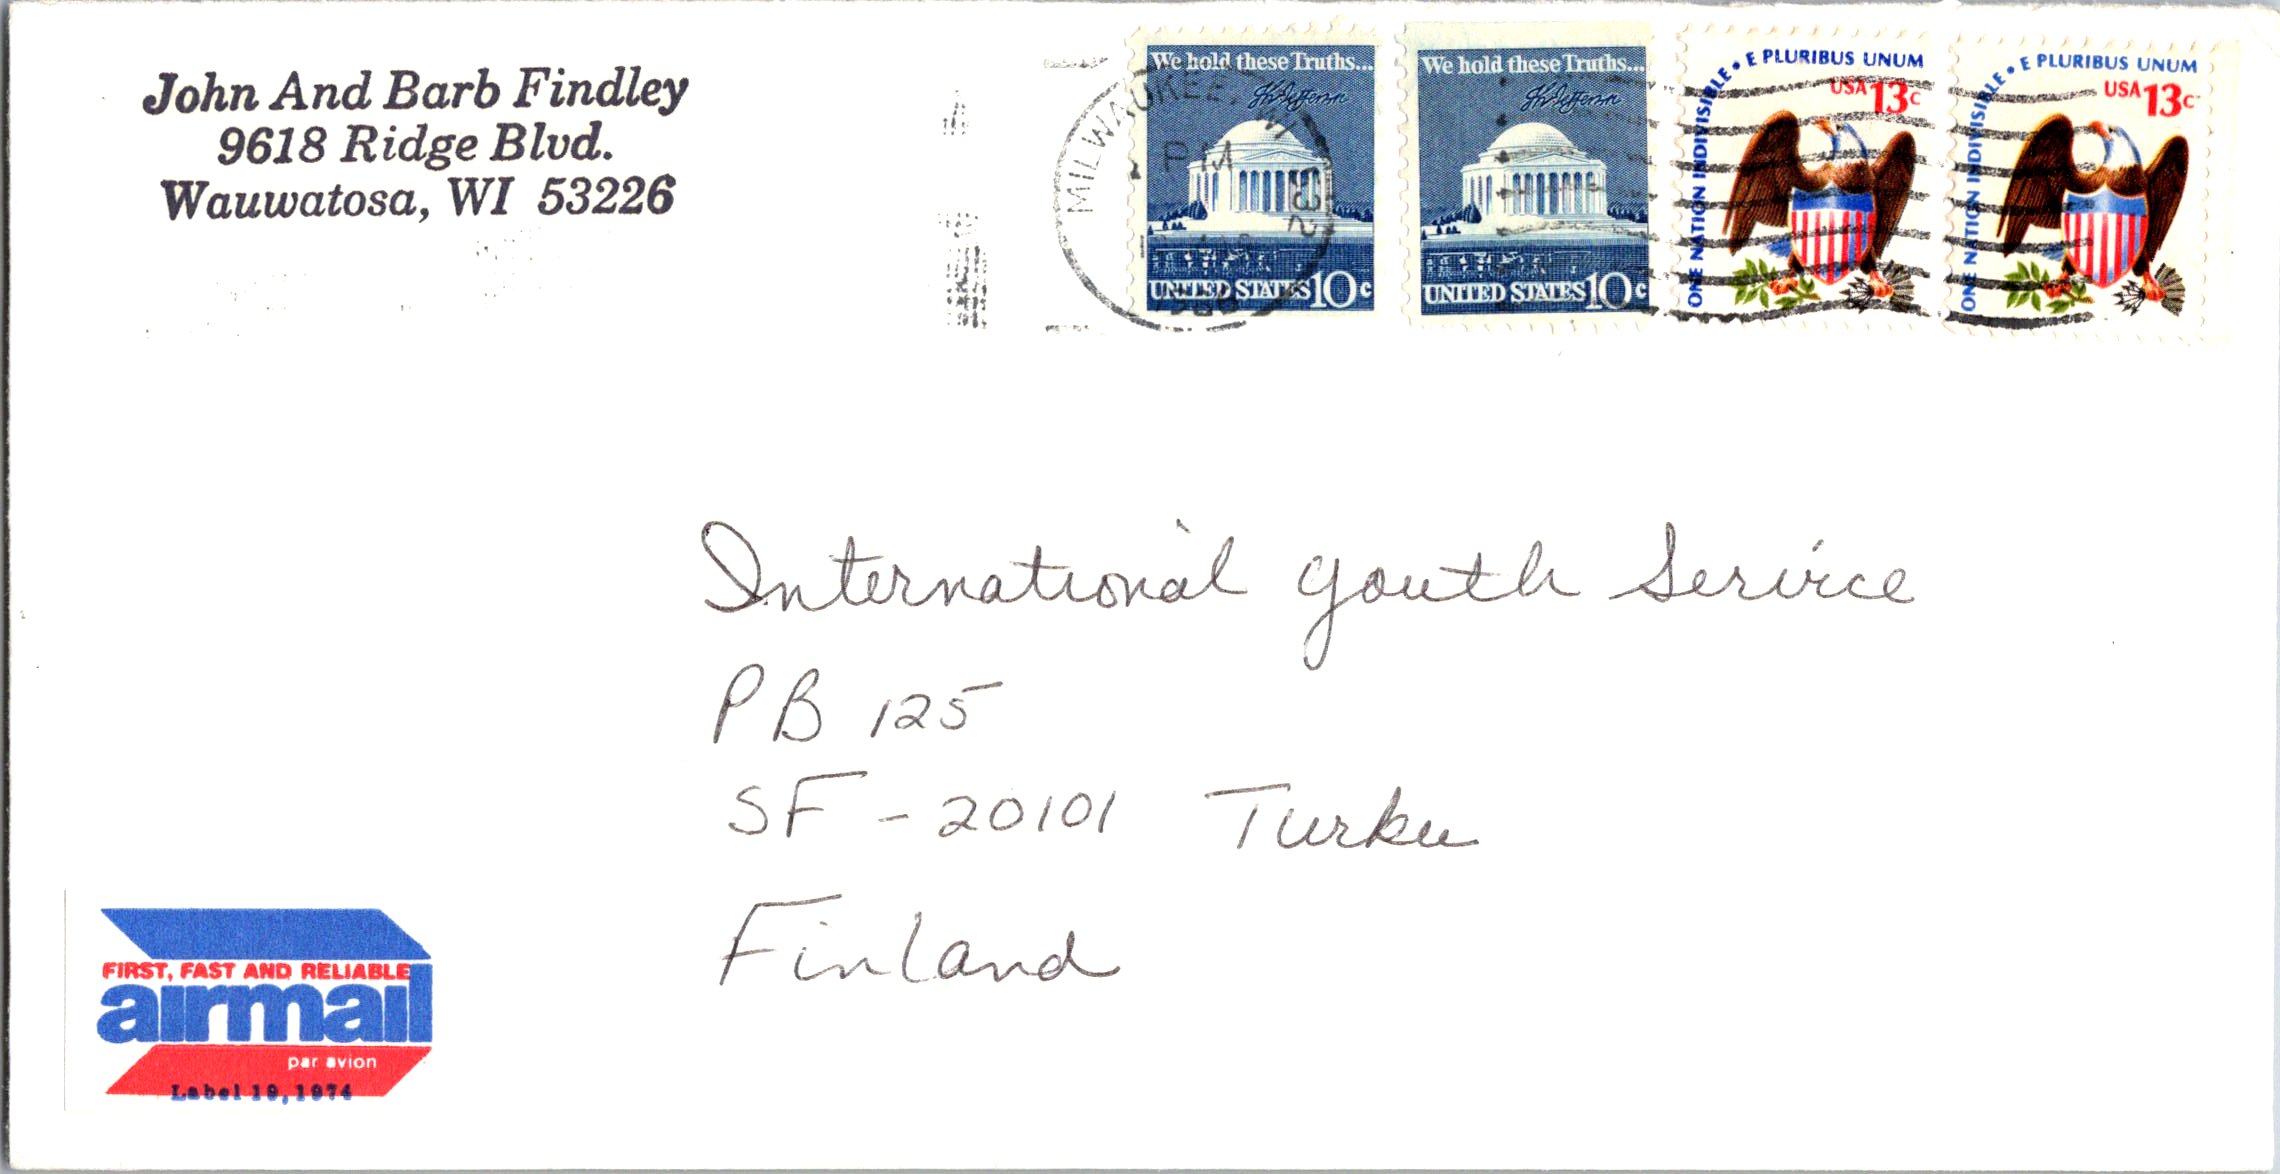 John And Barb Findley
9618 Ridge Blvd.
Wauwatosa, WI 53226
MILWAUKEE, WI
PM
1982
We hold these Truths...
Th Jefferson
UNITED STATES 10c
We hold these Truths...
Th Jefferson
UNITED STATES 10c
ONE NATION INDIVISIBLE • E PLURIBUS UNUM
USA 13c
ONE NATION INDIVISIBLE • E PLURIBUS UNUM
USA 13c
International Youth Service
PB 125
SF - 20101 Turku
Finland
FIRST, FAST AND RELIABLE
airmail
par avion
Label 19, 1974